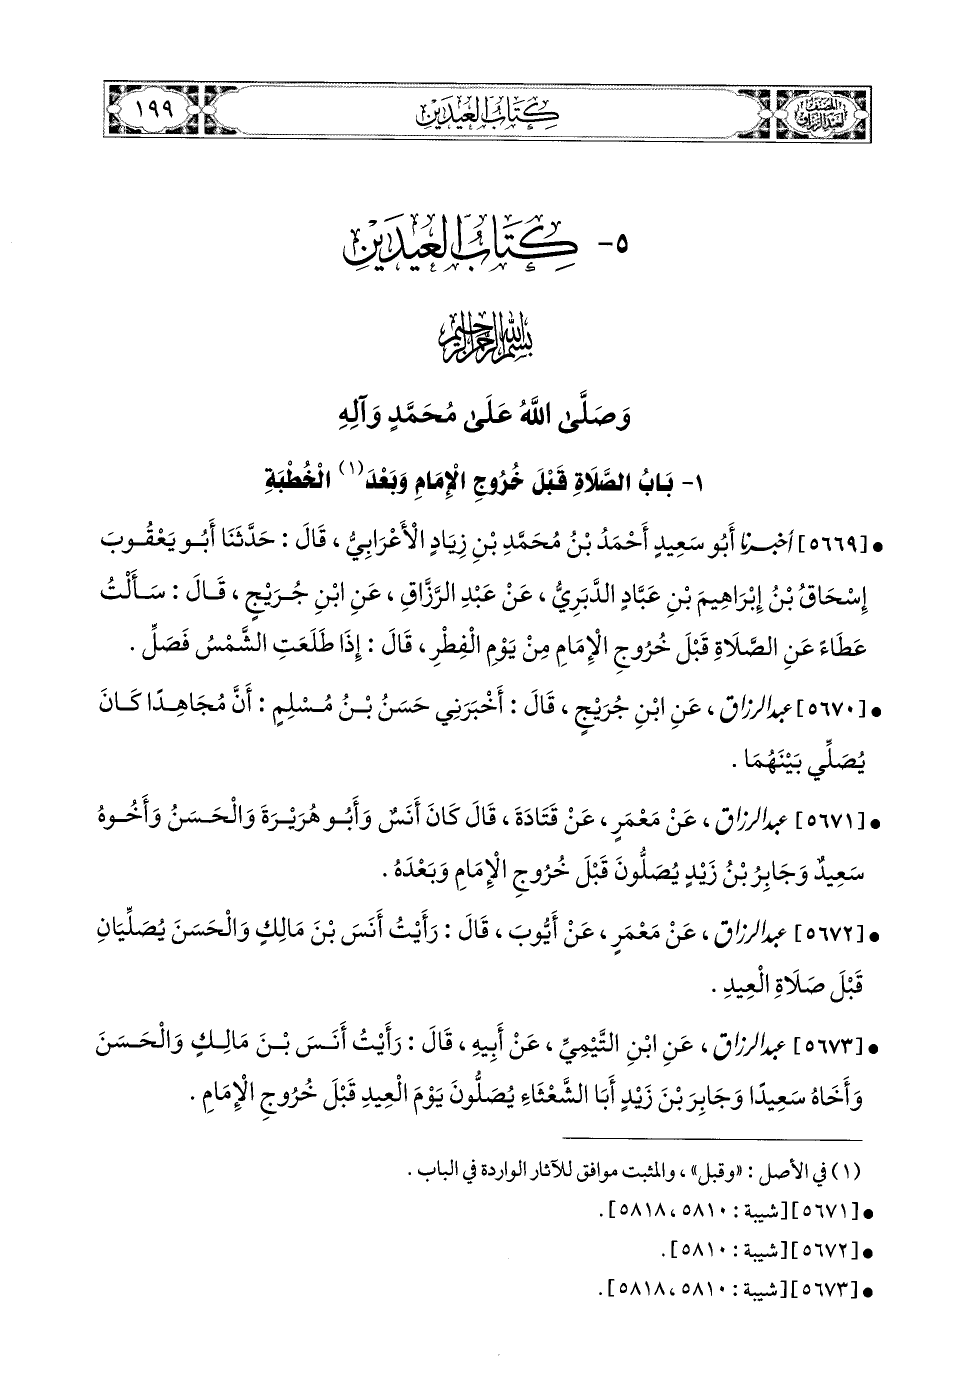 المصنف لعبد الرزاق
كِتَابُ الْعِيدَيْنِ
١٩٩
٥- كِتَابُ الْعِيدَيْنِ
بسم الله الرحمن الرحيم
وَصَلَّى اللَّهُ عَلَى مُحَمَّدٍ وَآلِهِ
١- بَابُ الصَّلَاةِ قَبْلَ خُرُوجِ الْإِمَامِ وَبَعْدَ(١) الْخُطْبَةِ
• [٥٦٦٩] أخبرنا أَبُو سَعِيدٍ أَحْمَدُ بْنُ مُحَمَّدِ بْنِ زِيَادٍ الْأَعْرَابِيُّ، قَالَ: حَدَّثَنَا أَبُو يَعْقُوبَ
إِسْحَاقُ بْنُ إِبْرَاهِيمَ بْنِ عَبَّادٍ الدَّبَرِيُّ، عَنْ عَبْدِ الرَّزَّاقِ، عَنِ ابْنِ جُرَيْجٍ، قَالَ: سَأَلْتُ
عَطَاءً عَنِ الصَّلَاةِ قَبْلَ خُرُوجِ الْإِمَامِ مِنْ يَوْمِ الْفِطْرِ، قَالَ: إِذَا طَلَعَتِ الشَّمْسُ فَصَلِّ.
• [٥٦٧٠] عبد الرزاق، عَنِ ابْنِ جُرَيْجٍ، قَالَ: أَخْبَرَنِي حَسَنُ بْنُ مُسْلِمٍ: أَنَّ مُجَاهِدًا كَانَ
يُصَلِّي بَيْنَهُمَا.
• [٥٦٧١] عبد الرزاق، عَنْ مَعْمَرٍ، عَنْ قَتَادَةَ، قَالَ كَانَ أَنَسٌ وَأَبُو هُرَيْرَةَ وَالْحَسَنُ وَأَخُوهُ
سَعِيدٌ وَجَابِرُ بْنُ زَيْدٍ يُصَلُّونَ قَبْلَ خُرُوجِ الْإِمَامِ وَبَعْدَهُ.
• [٥٦٧٢] عبد الرزاق، عَنْ مَعْمَرٍ، عَنْ أَيُّوبَ، قَالَ: رَأَيْتُ أَنَسَ بْنَ مَالِكٍ وَالْحَسَنَ يُصَلِّيَانِ
قَبْلَ صَلَاةِ الْعِيدِ.
• [٥٦٧٣] عبد الرزاق، عَنِ ابْنِ التَّيْمِيِّ، عَنْ أَبِيهِ، قَالَ: رَأَيْتُ أَنَسَ بْنَ مَالِكٍ وَالْحَسَنَ
وَأَخَاهُ سَعِيدًا وَجَابِرَ بْنَ زَيْدٍ أَبَا الشَّعْثَاءِ يُصَلُّونَ يَوْمَ الْعِيدِ قَبْلَ خُرُوجِ الْإِمَامِ.
(١) في الأصل: «وقبل»، والمثبت موافق للآثار الواردة في الباب.
• [٥٦٧١] [شيبة: ٥٨١٠، ٥٨١٨].
• [٥٦٧٢] [شيبة: ٥٨١٠].
• [٥٦٧٣] [شيبة: ٥٨١٠، ٥٨١٨].